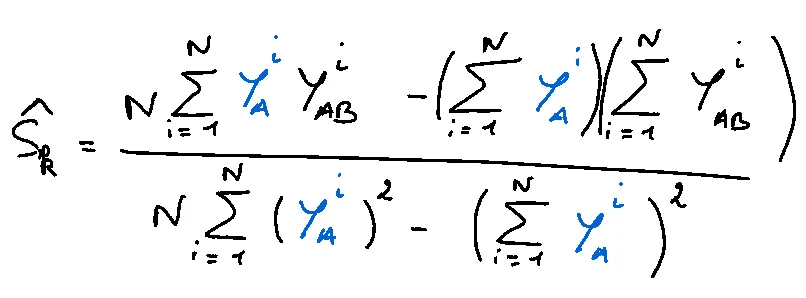 \hat{S}_R = \frac{N \sum_{i=1}^{N} Y_A^i Y_{AB}^i - \left( \sum_{i=1}^{N} Y_A^i \right) \left( \sum_{i=1}^{N} Y_{AB}^i \right)}{N \sum_{i=1}^{N} (Y_A^i)^2 - \left( \sum_{i=1}^{N} Y_A^i \right)^2}